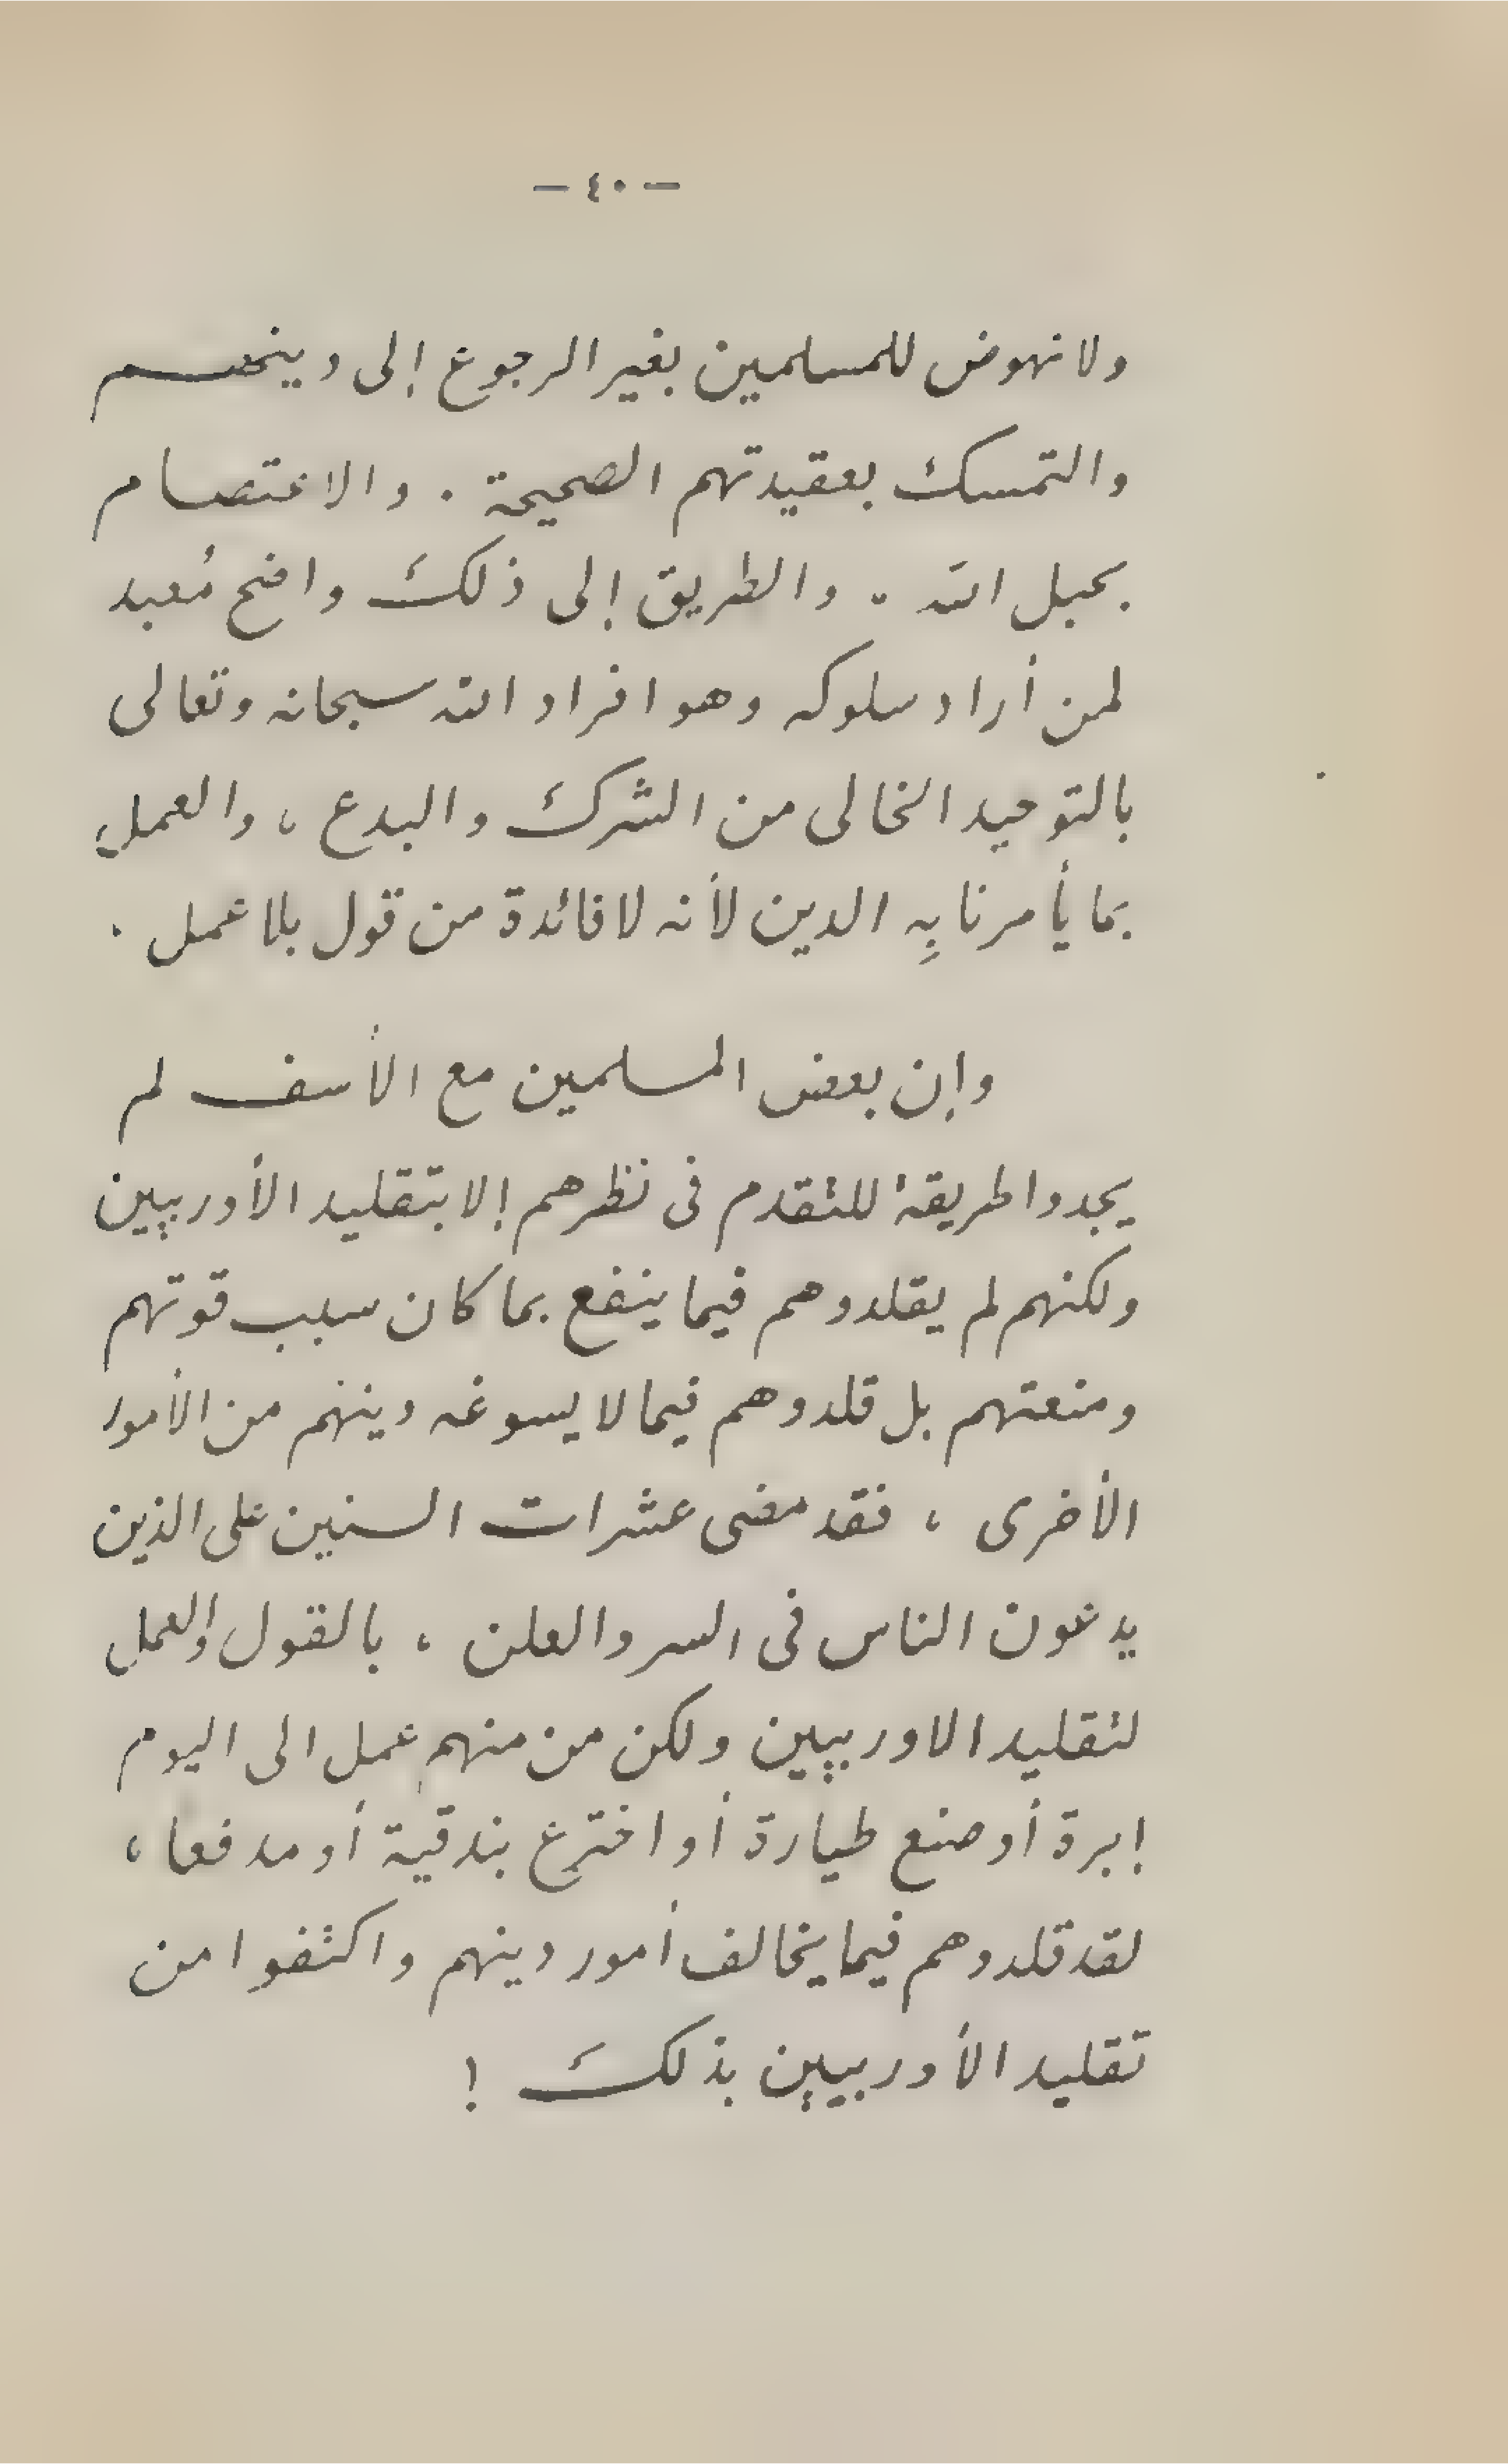 — ٤٠ —
ولا نهوض للمسلمين بغير الرجوع إلى دينهم
والتمسك بعقيدتهم الصحيحة . والاعتصام
بحبل الله . والطريق إلى ذلكَ واضح مُعبد
لمن أراد سلوكه وهو افراد الله سبحانه وتعالى
بالتوحيد الخالى من الشرك والبدع ، والعمل
بما يأمرنا بِه الدين لأنه لا فائدة من قول بلا عمل .
وإن بعض المسلمين مع الأسف لم
يجدوا طريقة للتقدم فى نظرهم إلا بتقليد الأوربيين
ولكنهم لم يقلدوهم فيما ينفع بما كان سبب قوتهم
ومنعتهم بل قلدوهم فيما لا يسوغه دينهم من الأمور
الأخرى ، فقد مضى عشرات السنين على الذين
يدعون الناس فى السر والعلن ، بالقول والعمل
لتقليد الاوربيين ولكن من منهم عمل الى اليوم
إبرة أو صنع طيارة أو اخترع بندقية أو مدفعا ،
لقد قلدوهم فيما يخالف أمور دينهم واكتفوا من
تقليد الأوربيين بذلكَ !